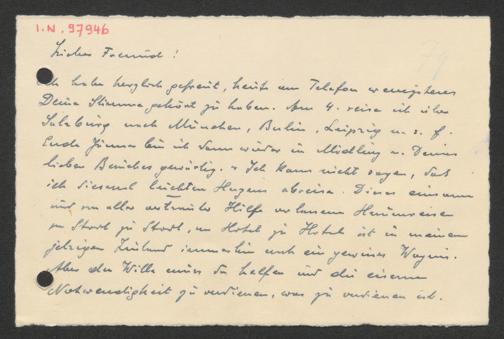 I.N. 97946
Lieber Freund!
Ich habe herzlich gefreut, heute am Telefon wenigstens
Deine Stimme gehört zu haben. Am 4. reise ich über
Salzburg nach München, Berlin, Leipzig u. s. f.
Ende Jänner bin ich dann wieder in Mödling u. Deines
lieben Besuches gewärtig. - Ich kann nicht sagen, daß
ich diesmal leichten Herzens abreise. Dieses einsame
und von aller vertrauter Hilfe verlassene Herumreisen
von Stadt zu Stadt, von Hotel zu Hotel ist in meinem
jetzigen Zustand immerhin auch ein gewisses Wagnis.
Aber der Wille muss da helfen und die eiserne
Notwendigkeit zu verdienen, was zu verdienen ist.